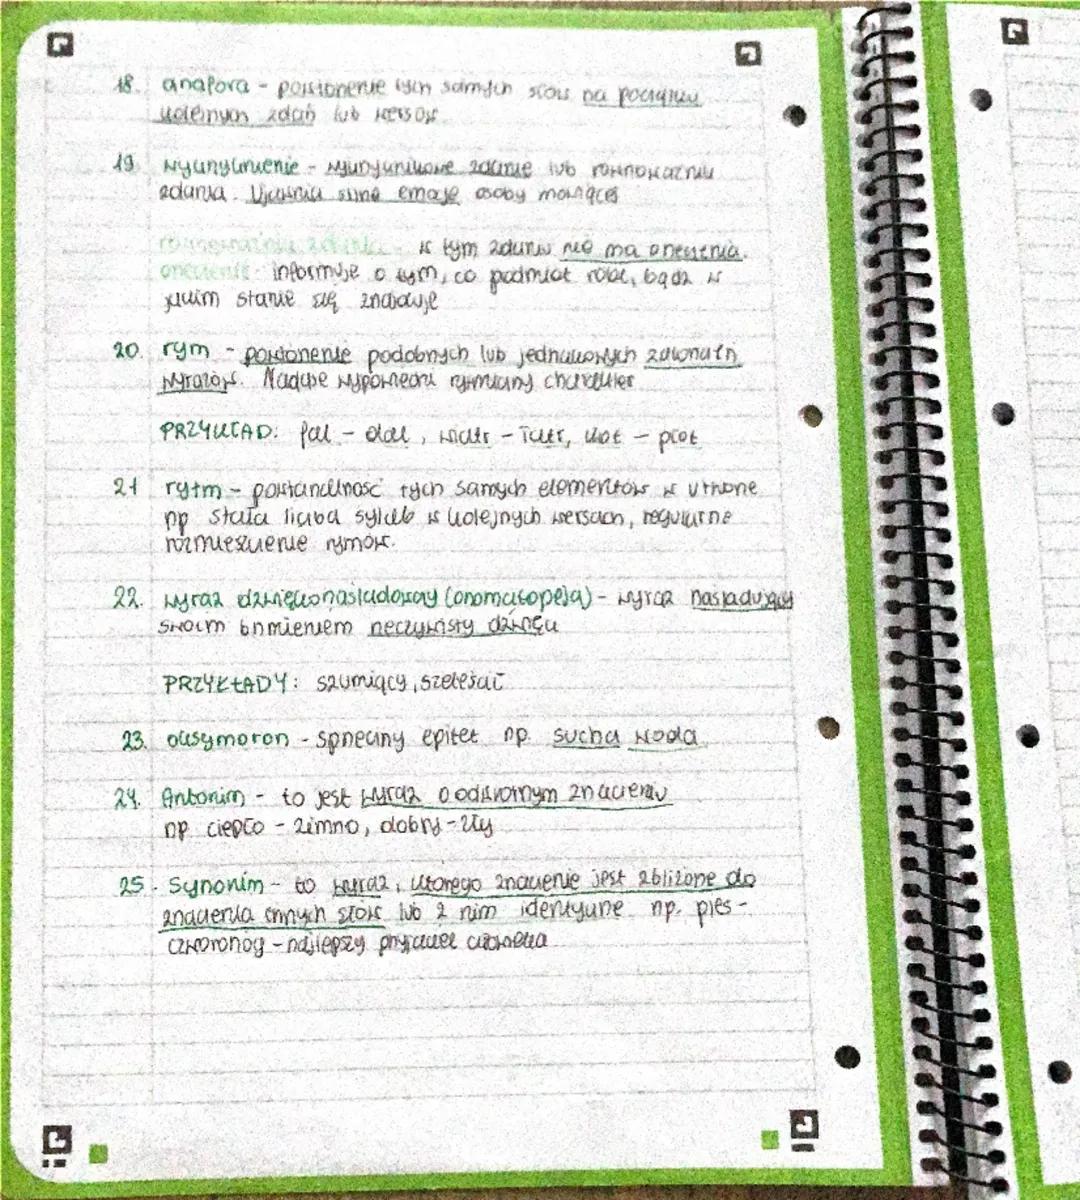 18. anafora - powtórzenie tych samych słów na początku
kolejnych zdań lub wersów.
19. Wykrzyknienie - wykrzyknikowe zdanie lub równoważnik
zdania. Ujawnia silne emocje osoby mówiącej
równoważnik zdania - w tym zdaniu nie ma orzeczenia.
orzeczenie - informuje o tym, co podmiot robi, bądź w
jakim stanie się znajduje
20. rym - powtórzenie podobnych lub jednakowych zakończeń
wyrazów. Nadaje wypowiedzi rytmiczny charakter
PRZYKŁAD: fal - dal, wiatr - Tatr, kot - płot
21 rytm - powtarzalność tych samych elementów w utworze
np stała liczba sylab w kolejnych wersach, regularne
rozmieszczenie rymów.
22. wyraz dźwiękonaśladowczy (onomatopeja) - wyraz naśladujący
swoim brzmieniem rzeczywisty dźwięk
PRZYKŁADY: szumiący, szeleścić
23. oksymoron - sprzeczny epitet np. sucha woda
24. Antonim - to jest wyraz o odwrotnym znaczeniu
np ciepło - zimno, dobry - zły
25. Synonim - to wyraz, którego znaczenie jest zbliżone do
znaczenia innych słów lub z nim identyczne np. pies -
czworonóg - najlepszy przyjaciel człowieka